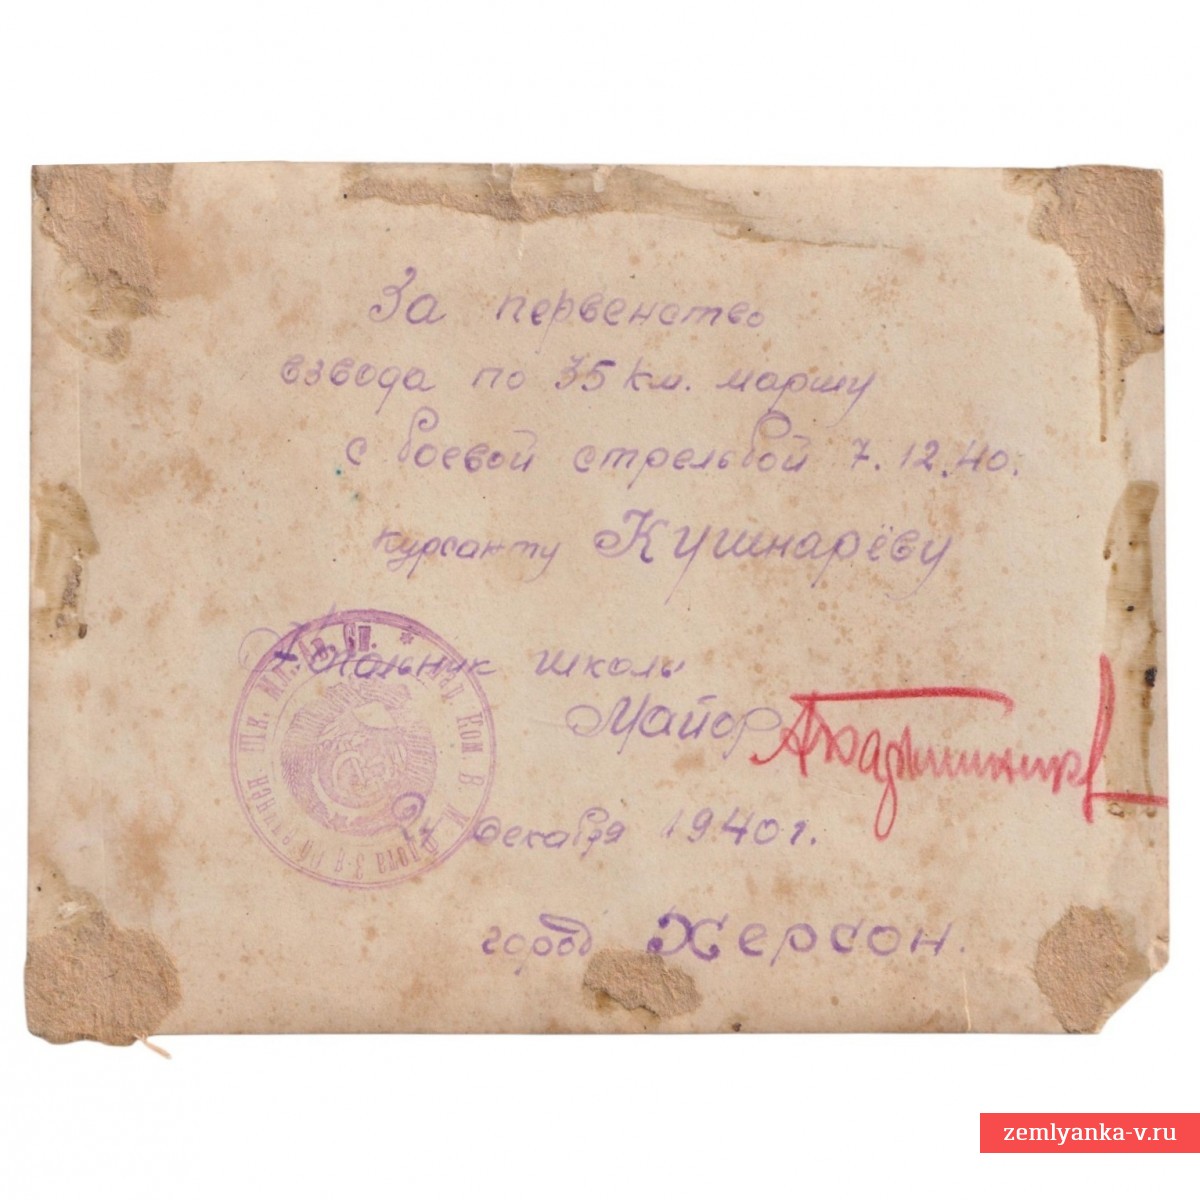 За первенство
взвода по 35 км. маршу
с боевой стрельбой 7.12.40.
курсанту Кушнарёву
Начальник школы
Майор
декабря 1940 г.
город Херсон.
zemlyanka-v.ru